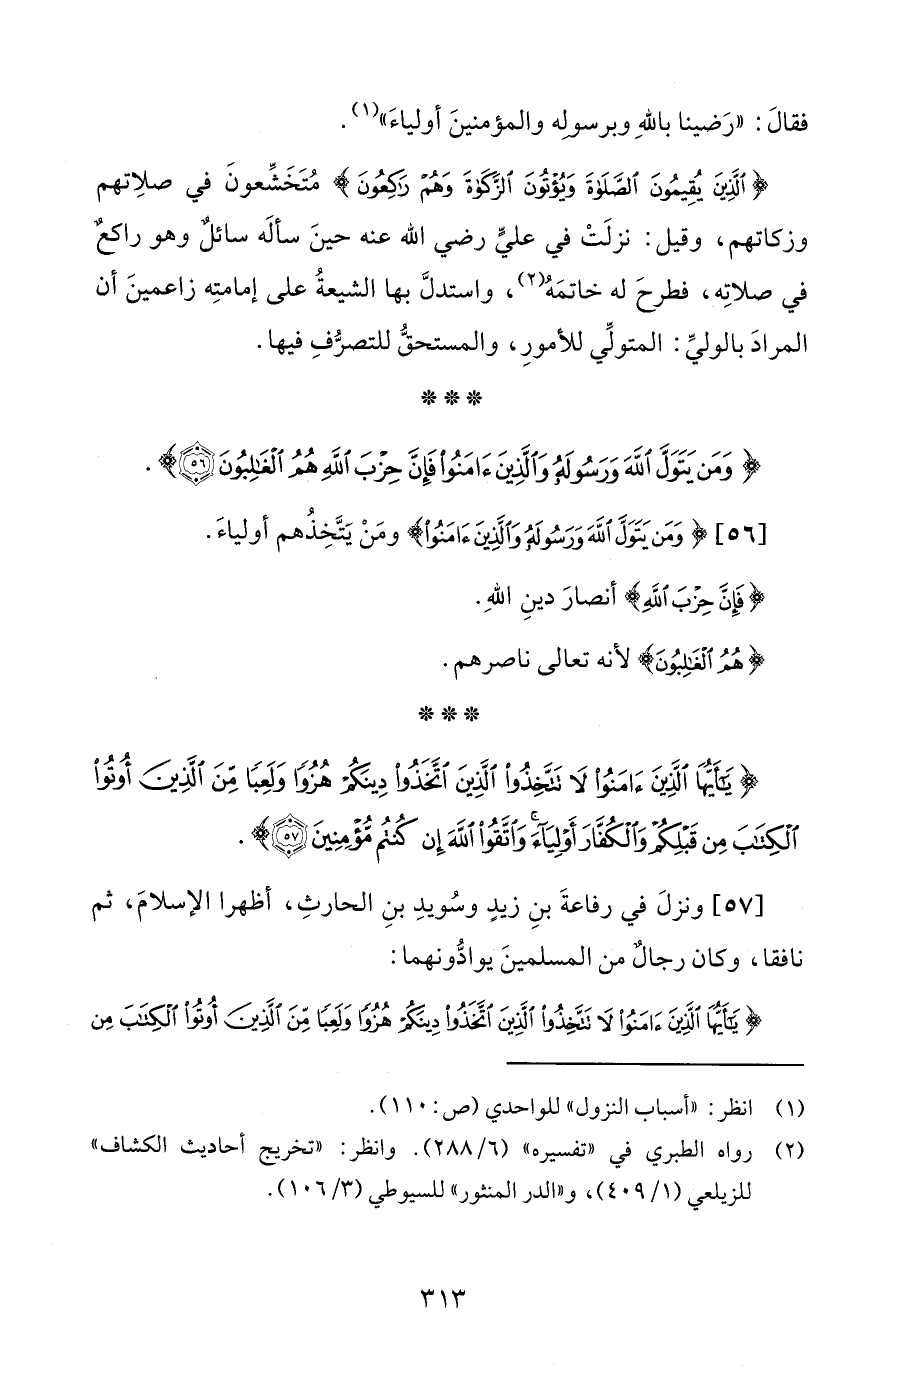 فقالَ: «رَضينا باللهِ وبرسولِه والمؤمنينَ أولياءَ»(١).
﴿ ٱلَّذِينَ يُقِيمُونَ ٱلصَّلَوٰةَ وَيُؤْتُونَ ٱلزَّكَوٰةَ وَهُمْ رَٰكِعُونَ ﴾ مُتَخَشِّعونَ في صلاتِهم
وزكاتهم، وقيل: نزلَتْ في عليٍّ رضي الله عنه حينَ سألَه سائلٌ وهو راكعٌ
في صلاتِه، فطرحَ له خاتمَهُ(٢)، واستدلَّ بها الشيعةُ على إمامتِه زاعمينَ أن
المرادَ بالوليِّ: المتولِّي للأمورِ، والمستحقُّ للتصرُّفِ فيها.
* * *
﴿ وَمَن يَتَوَلَّ ٱللَّهَ وَرَسُولَهُۥ وَٱلَّذِينَ ءَامَنُوا۟ فَإِنَّ حِزْبَ ٱللَّهِ هُمُ ٱلْغَٰلِبُونَ ٥٦ ﴾.
[٥٦] ﴿ وَمَن يَتَوَلَّ ٱللَّهَ وَرَسُولَهُۥ وَٱلَّذِينَ ءَامَنُوا۟﴾ ومَنْ يَتَّخِذُهم أولياءَ.
﴿ فَإِنَّ حِزْبَ ٱللَّهِ﴾ أنصارَ دينِ اللهِ.
﴿ هُمُ ٱلْغَٰلِبُونَ﴾ لأنه تعالى ناصرهم.
* * *
﴿ يَٰٓأَيُّهَا ٱلَّذِينَ ءَامَنُوا۟ لَا تَتَّخِذُوا۟ ٱلَّذِينَ ٱتَّخَذُوا۟ دِينَكُمْ هُزُوًا وَلَعِبًا مِّنَ ٱلَّذِينَ أُوتُوا۟
ٱلْكِتَٰبَ مِن قَبْلِكُمْ وَٱلْكُفَّارَ أَوْلِيَآءَ ۚ وَٱتَّقُوا۟ ٱللَّهَ إِن كُنتُم مُّؤْمِنِينَ ٥٧ ﴾.
[٥٧] ونزلَ في رفاعةَ بنِ زيدٍ وسُويدِ بنِ الحارثِ، أظهرا الإسلامَ، ثم
نافقا، وكان رجالٌ من المسلمينَ يوادُّونهما:
﴿ يَٰٓأَيُّهَا ٱلَّذِينَ ءَامَنُوا۟ لَا تَتَّخِذُوا۟ ٱلَّذِينَ ٱتَّخَذُوا۟ دِينَكُمْ هُزُوًا وَلَعِبًا مِّنَ ٱلَّذِينَ أُوتُوا۟ ٱلْكِتَٰبَ مِن
(١) انظر: «أسباب النزول» للواحدي (ص: ١١٠).
(٢) رواه الطبري في «تفسيره» (٦/ ٢٨٨). وانظر: «تخريج أحاديث الكشاف»
للزيلعي (١/ ٤٠٩)، و«الدر المنثور» للسيوطي (٣/ ١٠٦).
٣١٣